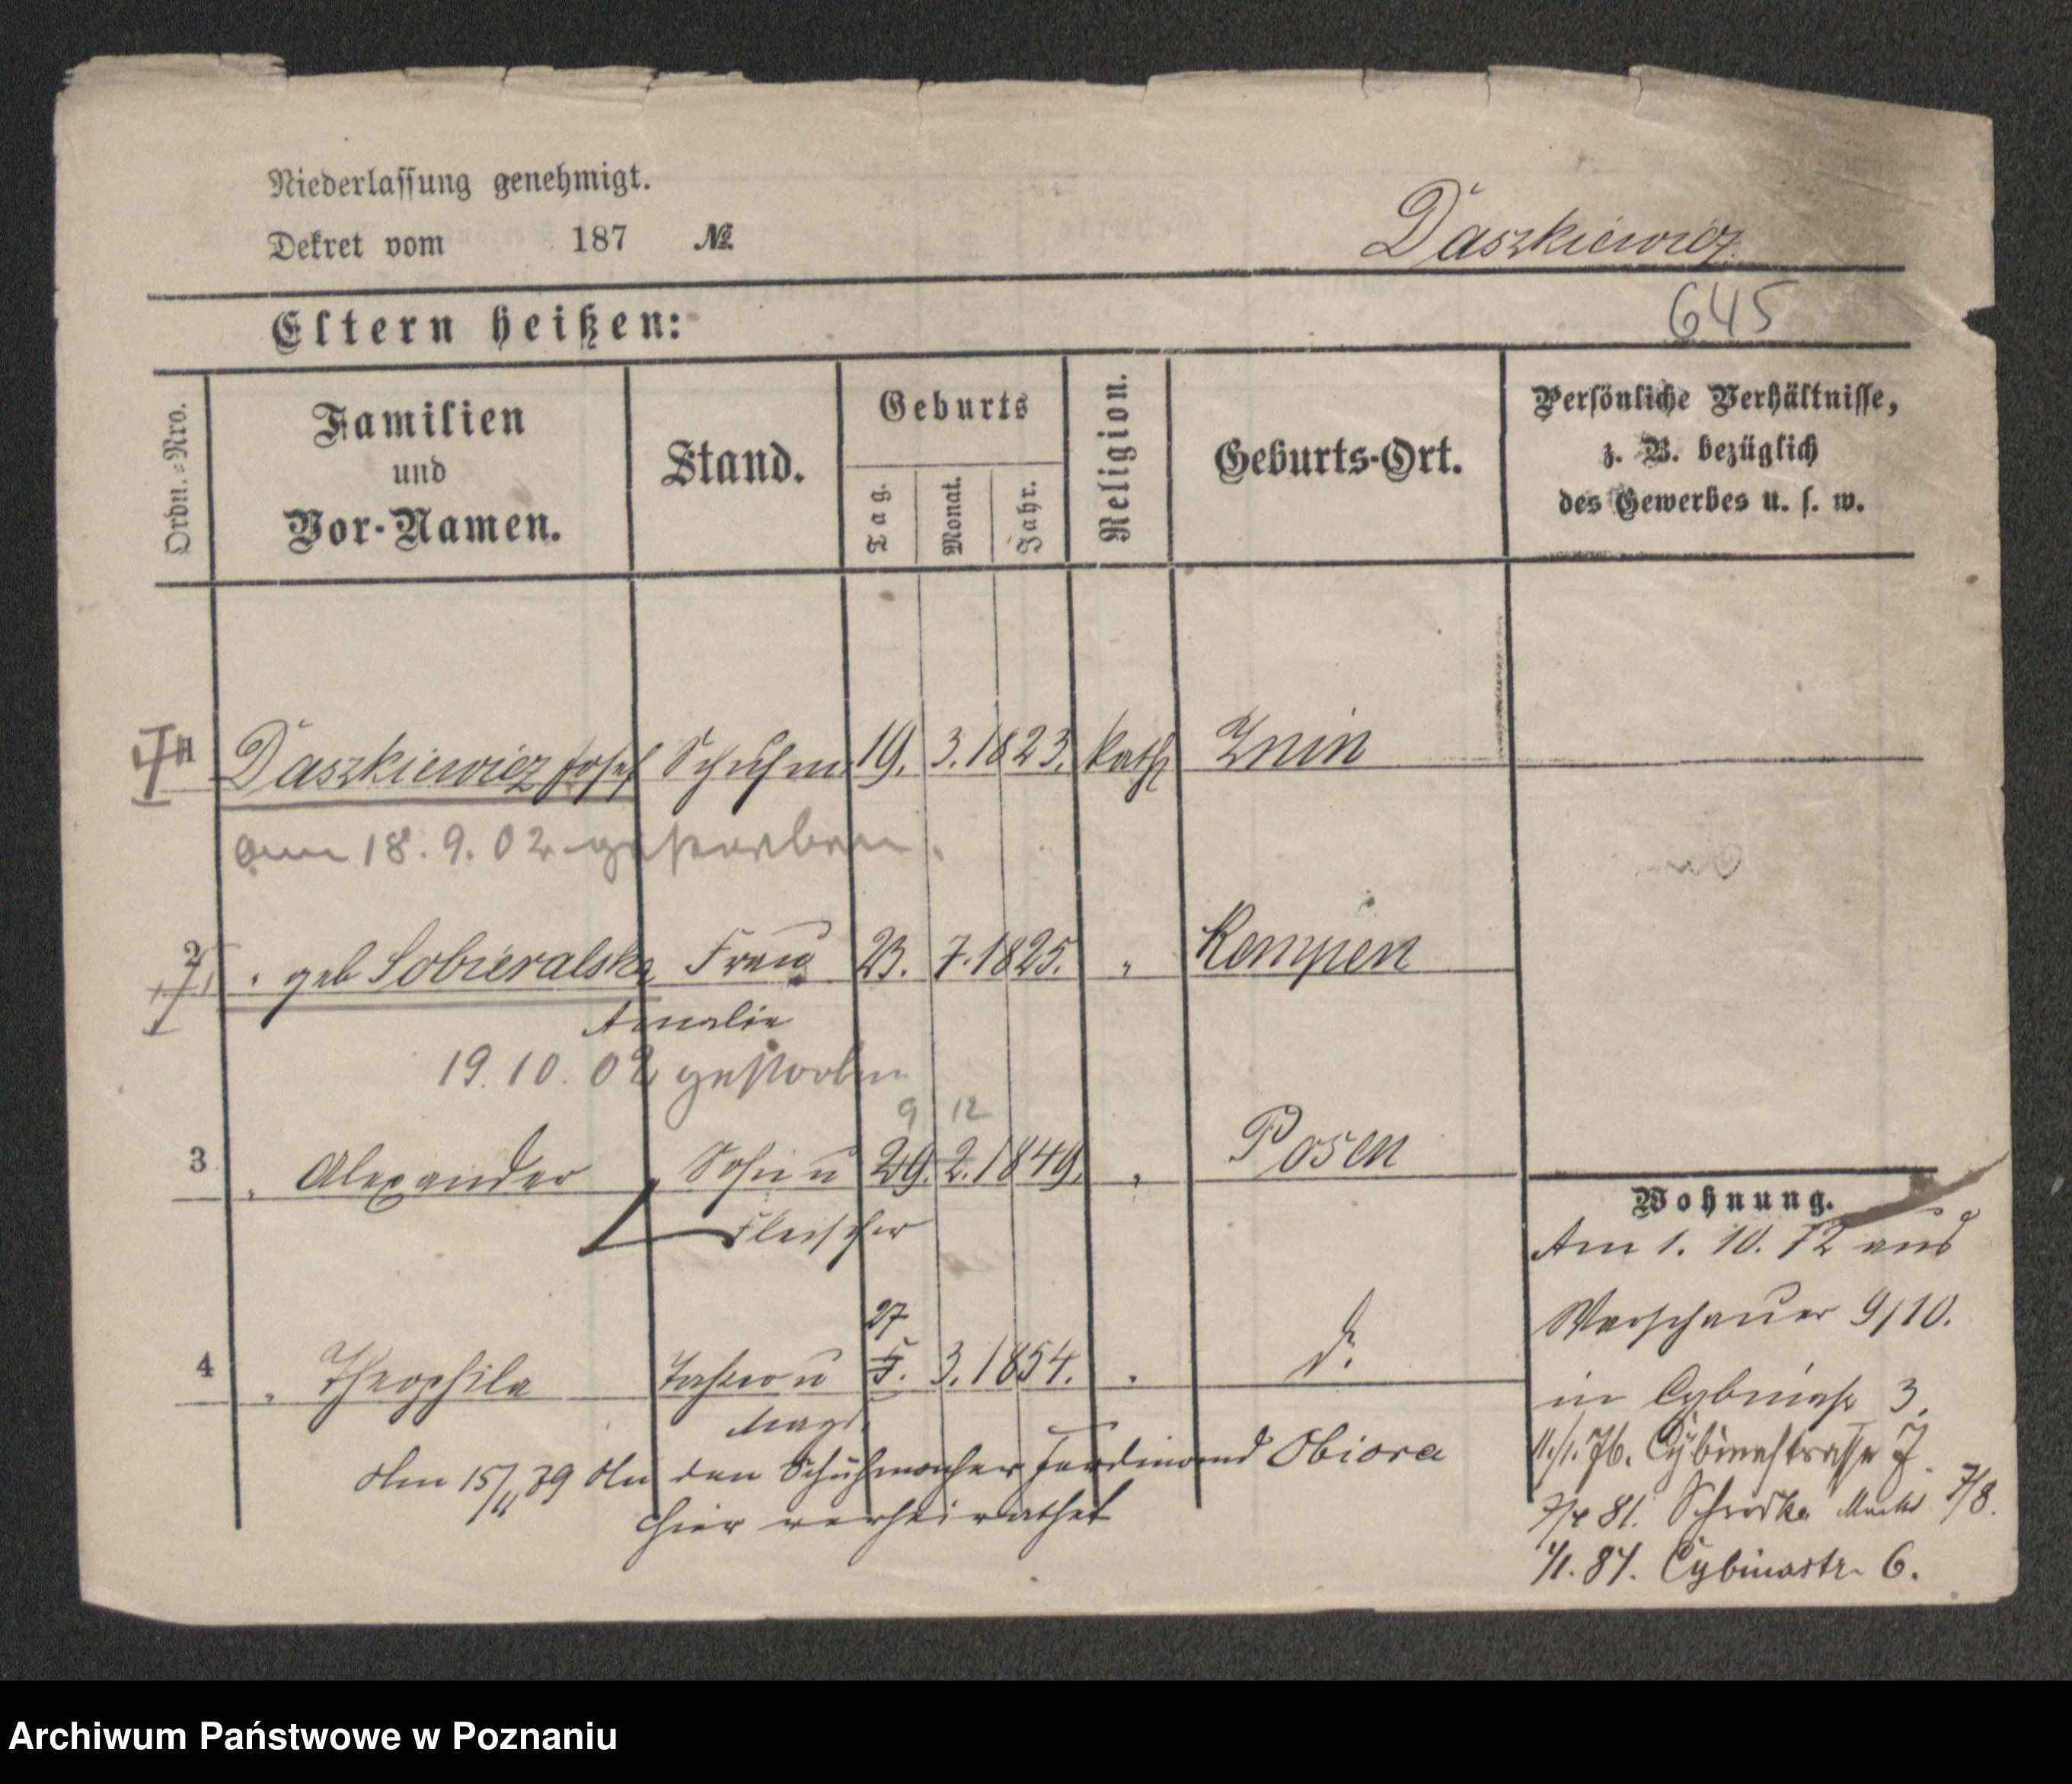 Niederlassung genehmigt.
Dekret vom 187 №
Daszkiewicz
645
Eltern heißen:
Ordn.=Nro.
Familien
und
Vor-Namen.
Stand.
Geburts
Tag.
Monat.
Jahr.
Religion.
Geburts-Ort.
Persönliche Verhältnisse,
z. B. bezüglich
des Gewerbes u. s. w.
1 Daszkiewicz Josef Schuhm 19. 3. 1823. kath Znin
am 18. 9. 02 gestorben.
2 " geb Sobieralska Frau 23. 7. 1825. " Kempen
Amalie
19. 10. 02 gestorben
9 12
3 " Alexander Sohn 29. 2. 1849. " Posen
Fleischer
27
4 " Theophila Tochter 5. 3. 1854. " d.
Magd.
Am 15/11 79 An den Schuhmacher Ferdinand Obiora
hier verheirathet
Wohnung.
Am 1. 10. 72 aus
Warschauer 9/10.
in Cybinastr 3.
11./1. 76. Cybinastrasse 7.
81. Schrodka Markt 7/8.
1/1. 87. Cybinastr. 6.
Archiwum Państwowe w Poznaniu